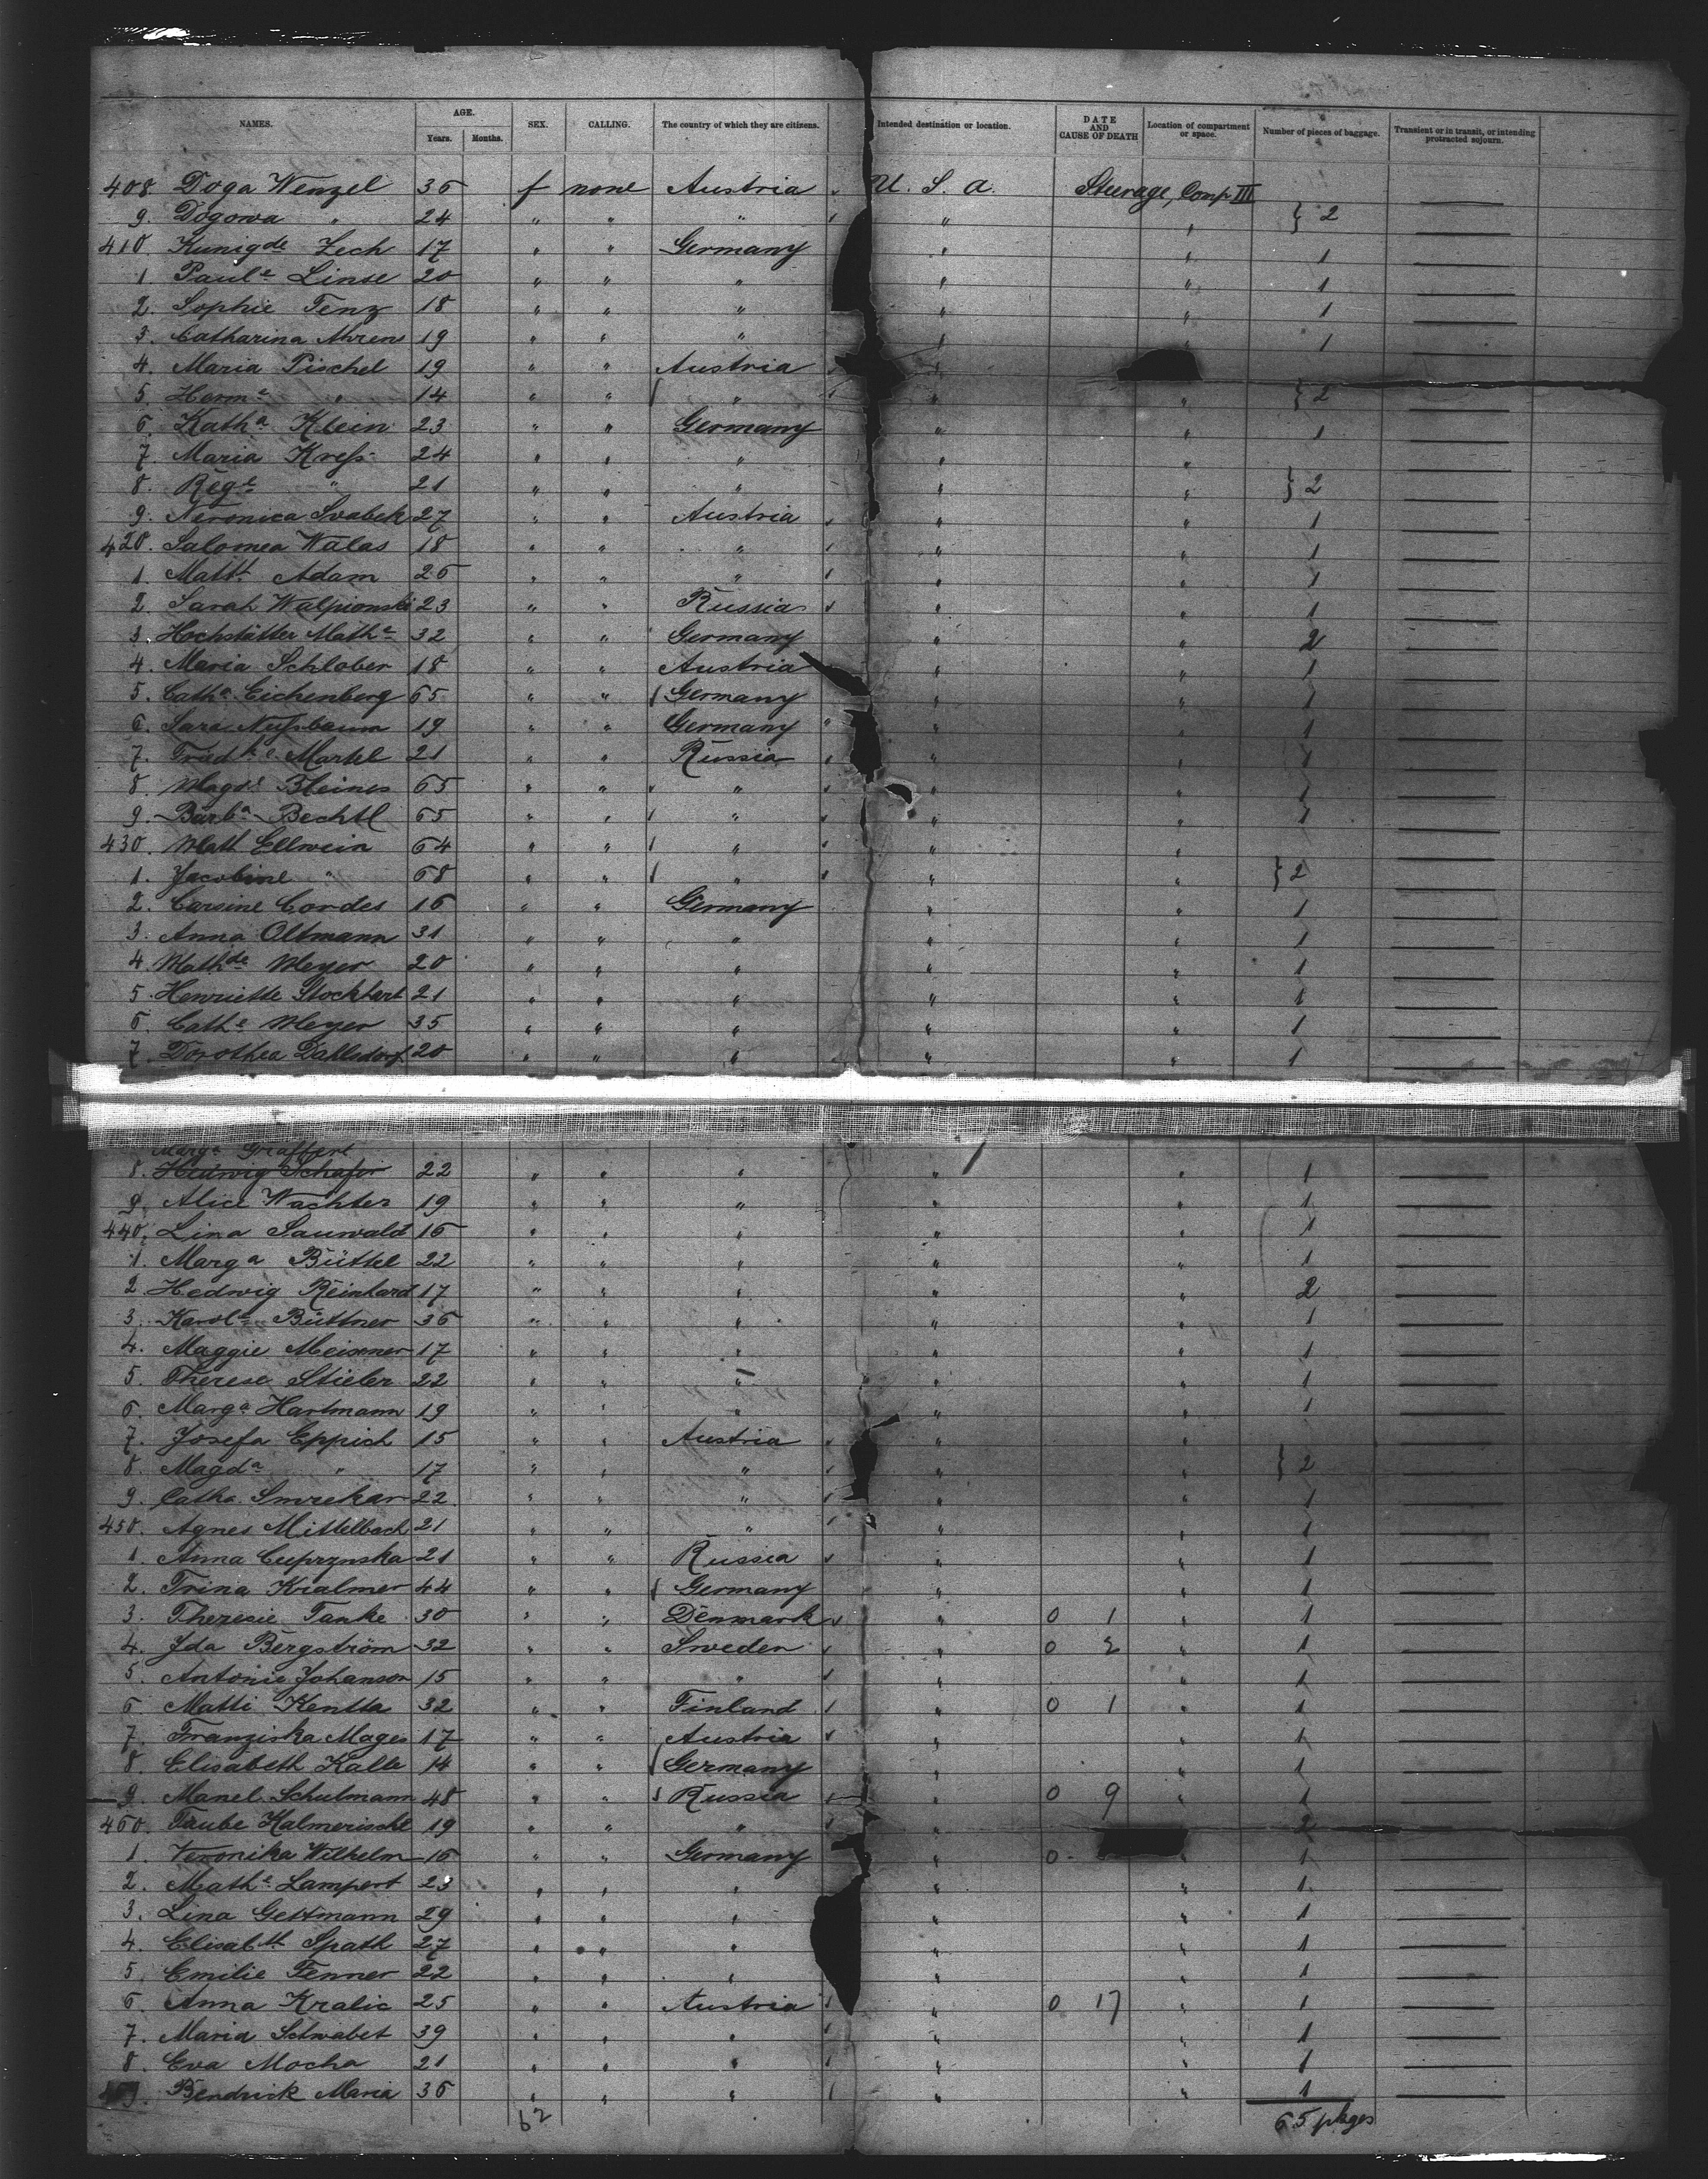 NAMES. AGE. Years. Months. SEX. CALLING. The country of which they are citizens. Intended destination or location. DATE AND CAUSE OF DEATH Location of compartment or space. Number of pieces of baggage. Transient or in transit, or intending protracted sojourn.
408 Doga Wenzel 36 f none Austria U. S. A. Steerage, Comp III
9. Dogowa " 24 " " " " " } 2
410. Kunigde Zech 17 " " Germany " " 1
1 Paule Linse 20 " " " " " 1
2. Sophie Tenz 18 " " " " " 1
3. Catharina Ahrens 19 " " " " " 1
4. Maria Pischel 19 " " Austria "
5. Herme " 14 " " " " " } 2
6. Katha Klein 23 " " Germany " " 1
7. Maria Kreß 24 " " " " "
8. Rege " 21 " " " " " } 2
9. Veronica Svabek 27 " " Austria " " 1
420. Salomea Walas 18 " " " " " 1
1. Matt. Adam 26 " " " " " 1
2. Sarah Walpionski 23 " " Russia " " 1
3. Hochstätter Mathe 32 " " Germany " " 2
4. Maria Schlober 18 " " Austria " " 1
5. Catha Eichenberg 65 " " Germany " " 1
6. Sara Nußbaum 19 " " Germany " " 1
7. Friedke Martel 21 " " Russia " " 1
8. Magde Bleines 65 " " " " " 1
9. Barba Bechtl 65 " " " " " 1
430. Math Ellwein 64 " " " " "
1. Jacobine " 68 " " " " " } 2
2. Carsine Cordes 16 " " Germany " " 1
3. Anna Oltmann 31 " " " " " 1
4. Mathde Meyer 20 " " " " " 1
5. Henriette Stockhert 21 " " " " " 1
6. Cathe Meyer 35 " " " " " 1
7. Dorothea Dahlsdorf 20 " " " " " 1
Marga Graffert
8. Hedwig Schafer 22 " " " " " 1
9. Alice Wachter 19 " " " " " 1
440. Lina Sauwald 16 " " " " " 1
1. Marga Büttel 22 " " " " " 1
2. Hedwig Reinhard 17 " " " " " 2
3. Karole Büttner 36 " " " " " 1
4. Maggie Meissner 17 " " " " " 1
5. Therese Stieler 22 " " " " " 1
6. Marga Hartmann 19 " " " " " 1
7. Josefa Eppich 15 " " Austria " "
8. Magda " 17 " " " " " } 2
9. Catha Smrekar 22 " " " " " 1
450. Agnes Mittelbach 21 " " " " " 1
1. Anna Cuprynska 21 " " Russia " " 1
2. Trina Kialmer 44 " " Germany " " 1
3. Theresie Tanke 30 " " Denmark " 0 1 " 1
4. Ida Bergström 32 " " Sweden " 0 2 " 1
5. Antonie Johanson 15 " " " " " 1
6. Matti Kentta 32 " " Finland " 0 1 " 1
7. Franziska Mages 17 " " Austria " " 1
8. Elisabeth Kalle 14 " " Germany " " 1
9. Manel Schulmann 48 " " Russia " 0 9 " 1
460. Taube Kalmerischl 19 " " " " " 2
1. Veronika Wilhelm 16 " " Germany " 0 " 1
2. Mathe Lampert 23 " " " " " 1
3. Lina Gettmann 29 " " " " " 1
4. Elisabth Spath 27 " " " " " 1
5. Emilie Fenner 22 " " " " " 1
6. Anna Kralic 25 " " Austria " 0 17 " 1
7. Maria Schwabet 39 " " " " " 1
8. Eva Mocha 21 " " " " " 1
Bendrick Maria 36 " " " " " 1
62 65 pkges